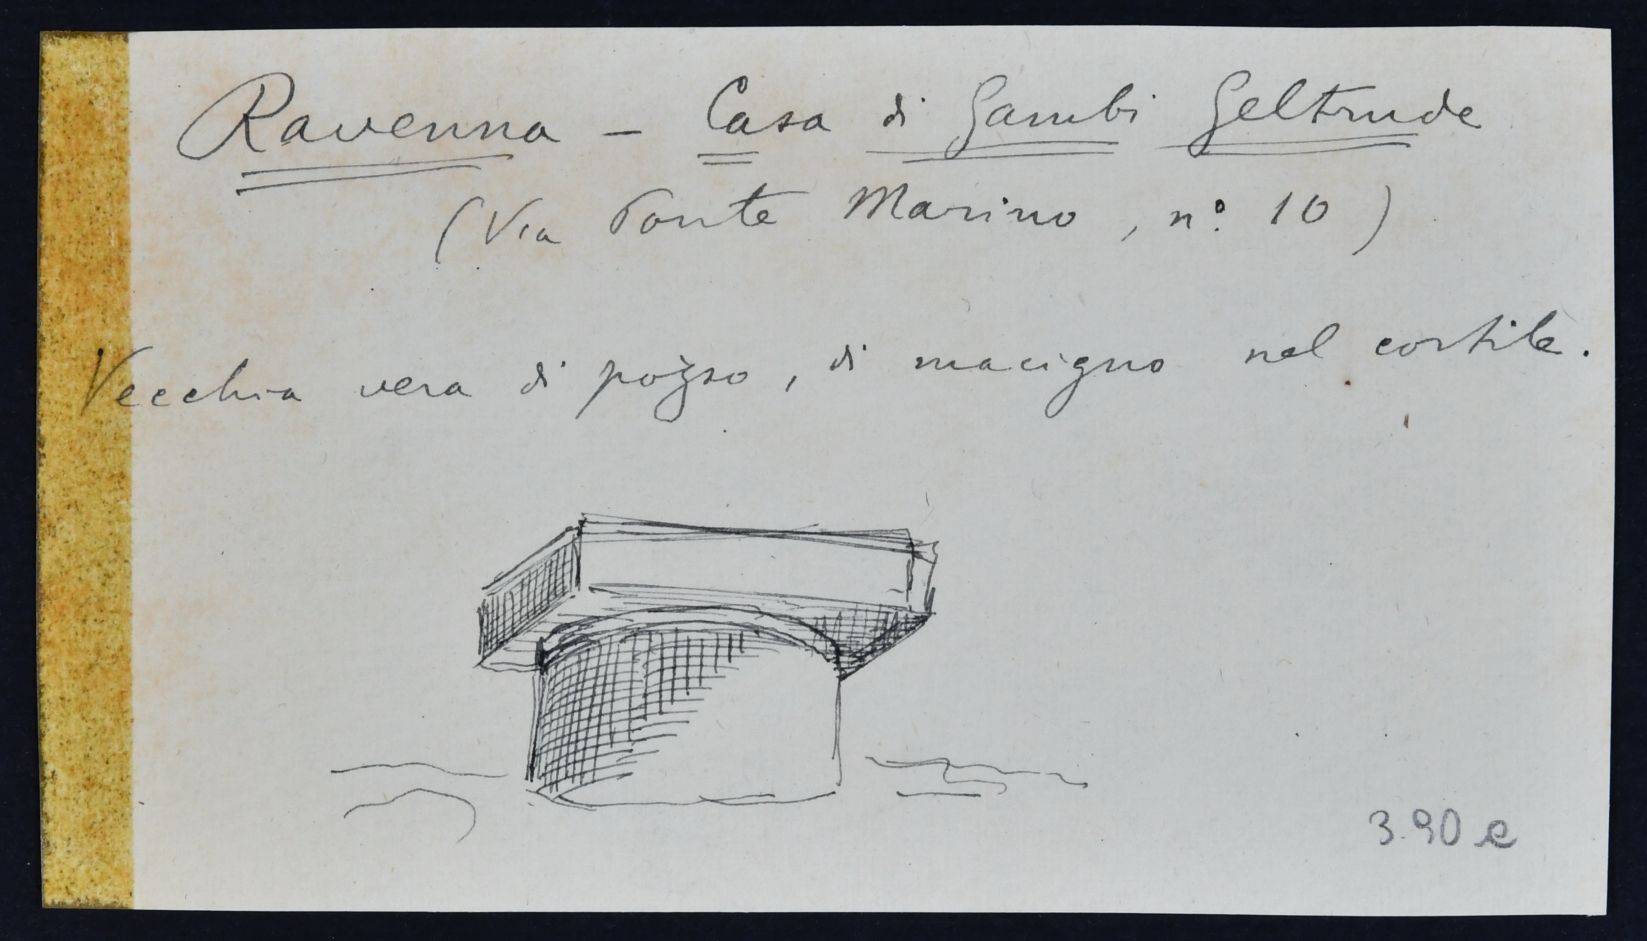 Ravenna - Casa di Gambi Geltrude
(Via Ponte Marino, n.° 10)
Vecchia vera di pozzo, di macigno nel cortile.
3.90 e